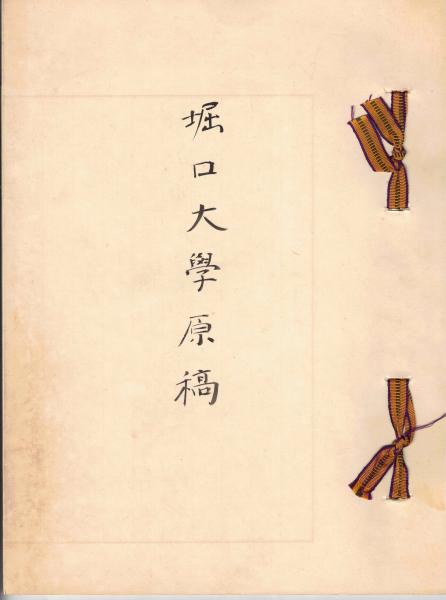 堀口大學原稿